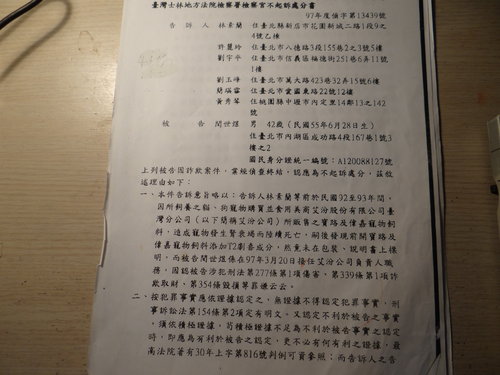 臺灣士林地方法院檢察署檢察官不起訴處分書
97年度偵字第13439號
告訴人 林素蘭 住臺北縣新店市花園新城二路1段9之
4號乙樓
許麗玲 住臺北市八德路3段155巷2之3號5樓
劉宇平 住臺北市信義區福德街251巷6弄11號
1樓
劉玉峰 住臺北市萬大路423巷32弄15號6樓
簡瑞霈 住臺北市愛國東路22號12樓
黃秀琴 住桃園縣中壢市內定里14鄰13之142
號
被告 閻世煜 男 42歲(民國55年6月28日生)
住臺北市內湖區成功路4段167巷1號3
樓之2
國民身分證統一編號:A120088127號
上列被告因詐欺案件,業經偵查終結,認應為不起訴處分,茲敘
述理由如下:
一、本件告訴意旨略以:告訴人林素蘭等前於民國92至93年間,
因所飼養之貓、狗寵物購買並食用美商艾汾股份有限公司臺
灣分公司(以下簡稱艾汾公司)所販售之寶路及偉嘉寵物飼
料,造成寵物發生腎衰竭而陸續死亡,嗣後發現前開寶路及
偉嘉寵物飼料添加T2劇毒成分,然竟未在包裝、說明書上標
明,而被告閻世煜係在97年3月20日接任艾汾公司負責人職
務,因認被告涉犯刑法第277條第1項傷害,第339條第1項詐
欺取財,第354條毀損等罪嫌云云。
二、按犯罪事實應依證據認定之,無證據不得認定犯罪事實,刑
事訴訟法第154條第2項定有明文。又認定不利於被告之事實
,須依積極證據,苟積極證據不足為不利於被告事實之認定
時,即應為有利於被告之認定,更不必有何有利之證據,最
高法院著有30年上字第816號判例可資參照;而告訴人之告